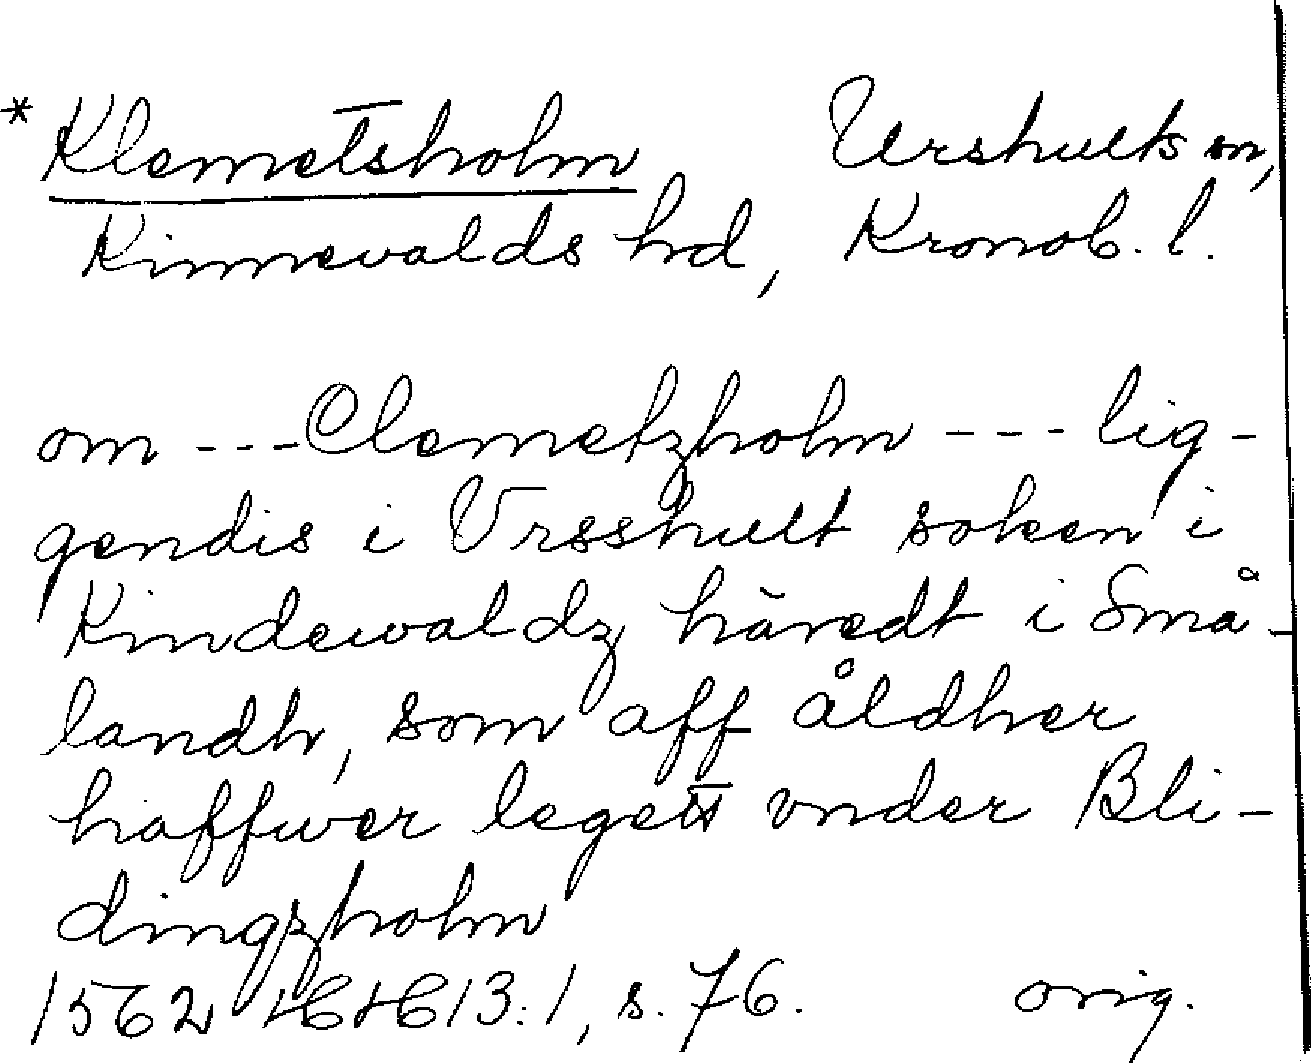 * Klemetsholm Urshults sn,
Kinnevalds hd, Kronob. l.
om --- Clemetzholm --- lig-
gendis i Vrsshult soken i
Kindewaldz häredt i Små-
landh, som aff åldher
haffwer legett vnder Bli-
dingzholm
1562 HH 13:1, s. 76. orig.